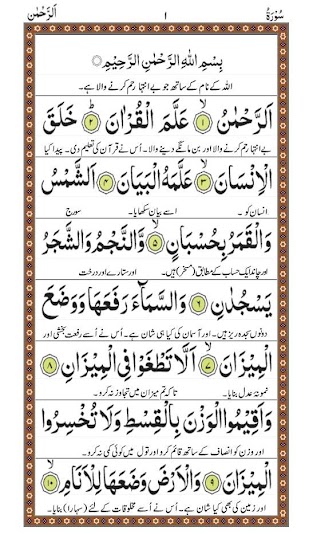 سُوْرَةُ ١ اَلرَّحْمٰن
بِسْمِ اللّٰهِ الرَّحْمٰنِ الرَّحِيْمِ
اللہ کے نام کے ساتھ جو بے انتہا رحم کرنے والا ہے۔
اَلرَّحْمٰنُ ۙ‏ ١ عَلَّمَ الْقُرْاٰنَ ؕ‏ ٢ خَلَقَ
بے انتہا رحم کرنے والا اور بن مانگے دینے والا۔ اُس نے قرآن کی تعلیم دی۔ پیدا کیا
الْاِنْسَانَ ۙ‏ ٣ عَلَّمَهُ الْبَيَانَ ٤ اَلشَّمْسُ
انسان کو۔ اسے بیان سکھایا۔ سورج
وَالْقَمَرُ بِحُسْبَانٍ ۙ‏ ٥ وَّالنَّجْمُ وَالشَّجَرُ
اور چاند ایک حساب کے مطابق (مسخر) ہیں۔ اور ستارے اور درخت
يَسْجُدٰنِ ٦ وَالسَّمَآءَ رَفَعَهَا وَوَضَعَ
دونوں سجدہ ریز ہیں۔ اور آسمان کی کیا ہی شان ہے۔ اُس نے اُسے رفعت بخشی اور
الْمِيْزَانَ ۙ‏ ٧ اَلَّا تَطْغَوْا فِي الْمِيْزَانِ ٨
نمونۂ عدل بنایا۔ تا کہ تم میزان میں تجاوز نہ کرو۔
وَاَقِيْمُوا الْوَزْنَ بِالْقِسْطِ وَلَا تُخْسِرُوا
اور وزن کو انصاف کے ساتھ قائم کرو اور تول میں کوئی کمی نہ کرو۔
الْمِيْزَانَ ٩ وَالْاَرْضَ وَضَعَهَا لِلْاَنَامِ ۙ‏ ١٠
اور زمین کی بھی کیا شان ہے۔ اُس نے اُسے مخلوقات کے لئے (سہارا) بنایا۔